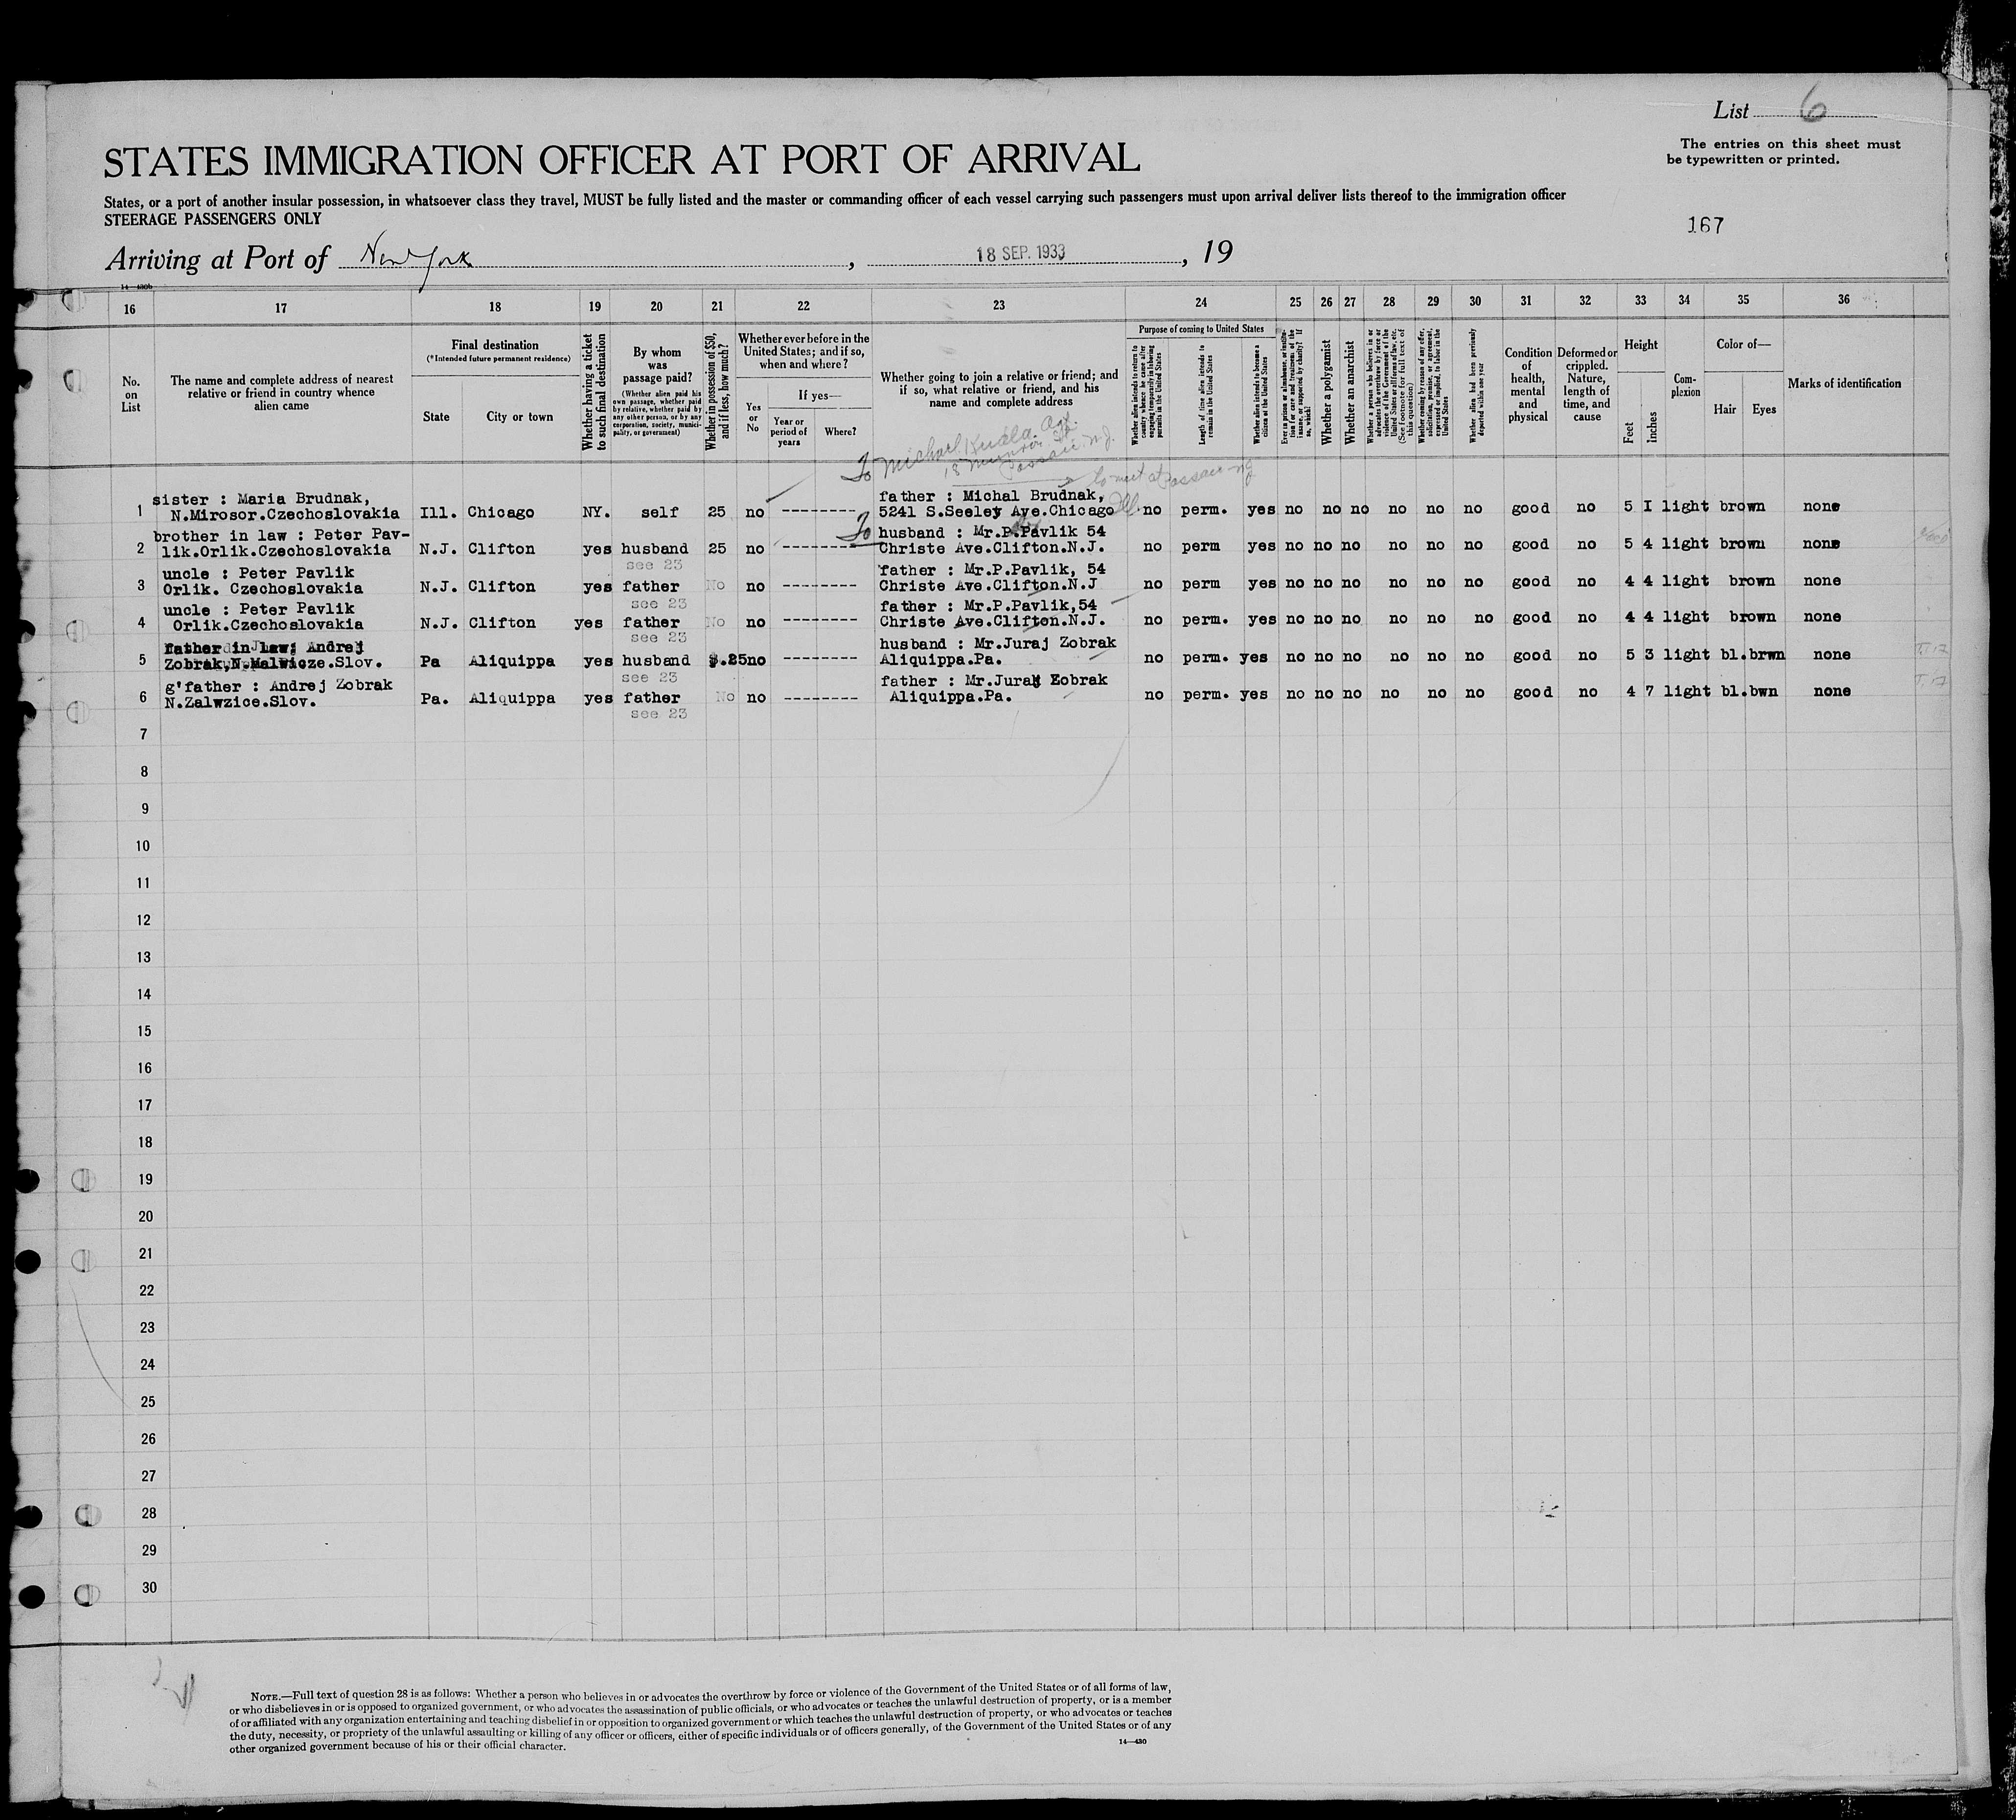 List 6
The entries on this sheet must
be typewritten or printed.
STATES IMMIGRATION OFFICER AT PORT OF ARRIVAL
States, or a port of another insular possession, in whatsoever class they travel, MUST be fully listed and the master or commanding officer of each vessel carrying such passengers must upon arrival deliver lists thereof to the immigration officer
STEERAGE PASSENGERS ONLY
167
Arriving at Port of New York, 18 SEP. 1933, 19
14—430b
16 17 18 19 20 21 22 23 24 25 26 27 28 29 30 31 32 33 34 35 36
No. on List
The name and complete address of nearest relative or friend in country whence alien came
Final destination
(*Intended future permanent residence)
State
City or town
Whether having a ticket to such final destination
By whom was passage paid?
(Whether alien paid his own passage, whether paid by relative, whether paid by any other person, or by any corporation, society, municipality, or government)
Whether in possession of $50, and if less, how much?
Whether ever before in the United States; and if so, when and where?
Yes or No
If yes—
Year or period of years
Where?
Whether going to join a relative or friend; and if so, what relative or friend, and his name and complete address
Purpose of coming to United States
Whether alien intends to return to country whence he came after engaging temporarily in laboring pursuits in the United States
Length of time alien intends to remain in the United States
Whether alien intends to become a citizen of the United States
Ever in prison or almshouse, or institution for care and treatment of the insane, or supported by charity? If so, which?
Whether a polygamist
Whether an anarchist
Whether a person who believes in or advocates the overthrow by force or violence of the Government of the United States or all forms of law, etc. (See footnote for full text of this question)
Whether coming by reason of any offer, solicitation, promise, or agreement, expressed or implied, to labor in the United States
Whether alien had been previously deported within one year
Condition of health, mental and physical
Deformed or crippled. Nature, length of time, and cause
Height
Feet
Inches
Complexion
Color of—
Hair
Eyes
Marks of identification
To Michael Kudla
Passaic N.J.
to meet at Passaic NJ
sister : Maria Brudnak, father : Michal Brudnak,
1 N.Mirosor.Czechoslovakia Ill. Chicago NY. self 25 no --------- 5241 S.Seeley Ave.Chicago Ill. no perm. yes no no no no no no good no 5 I light brown none
brother in law : Peter Pav- To husband : Mr.P.Pavlik 54
2 lik.Orlik.Czechoslovakia N.J. Clifton yes husband 25 no --------- Christe Ave.Clifton.N.J. no perm yes no no no no no no good no 5 4 light brown none
see 23
uncle : Peter Pavlik father : Mr.P.Pavlik, 54
3 Orlik. Czechoslovakia N.J. Clifton yes father No no --------- Christe Ave.Clifton.N.J no perm yes no no no no no no good no 4 4 light brown none
see 23
uncle : Peter Pavlik father : Mr.P.Pavlik,54
4 Orlik.Czechoslovakia N.J. Clifton yes father No no --------- Christe Ave.Clifton.N.J. no perm. yes no no no no no no good no 4 4 light brown none
see 23
father in law; Andrej husband : Mr.Juraj Zobrak
5 Zobrak,N.Malwicze.Slov. Pa Aliquippa yes husband $.25 no --------- Aliquippa.Pa. no perm. yes no no no no no no good no 5 3 light bl.brwn none
see 23
g'father : Andrej Zobrak father : Mr.Juraj Zobrak
6 N.Zalwzice.Slov. Pa. Aliquippa yes father No no --------- Aliquippa.Pa. no perm. yes no no no no no no good no 4 7 light bl.bwn none
see 23
7
8
9
10
11
12
13
14
15
16
17
18
19
20
21
22
23
24
25
26
27
28
29
30
NOTE.—Full text of question 28 is as follows: Whether a person who believes in or advocates the overthrow by force or violence of the Government of the United States or of all forms of law,
or who disbelieves in or is opposed to organized government, or who advocates the assassination of public officials, or who advocates or teaches the unlawful destruction of property, or is a member
of or affiliated with any organization entertaining and teaching disbelief in or opposition to organized government or which teaches the unlawful destruction of property, or who advocates or teaches
the duty, necessity, or propriety of the unlawful assaulting or killing of any officer or officers, either of specific individuals or of officers generally, of the Government of the United States or of any
other organized government because of his or their official character.
14—430